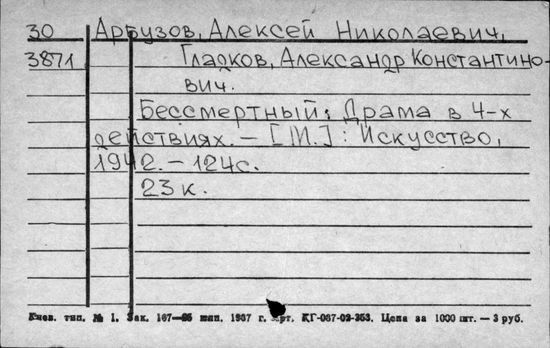 30 Арбузов, Алексей Николаевич,
3871 Гладков, Александр Константино-
вич.
Бессмертный: Драма в 4-х
действиях. – [М.]: Искусство,
1942. – 124с.
23 к.
Киев. тип. № 1. Зак. 167— 1937 г. Арт. КГ-067-02-253. Цена за 1000 шт. — 3 руб.